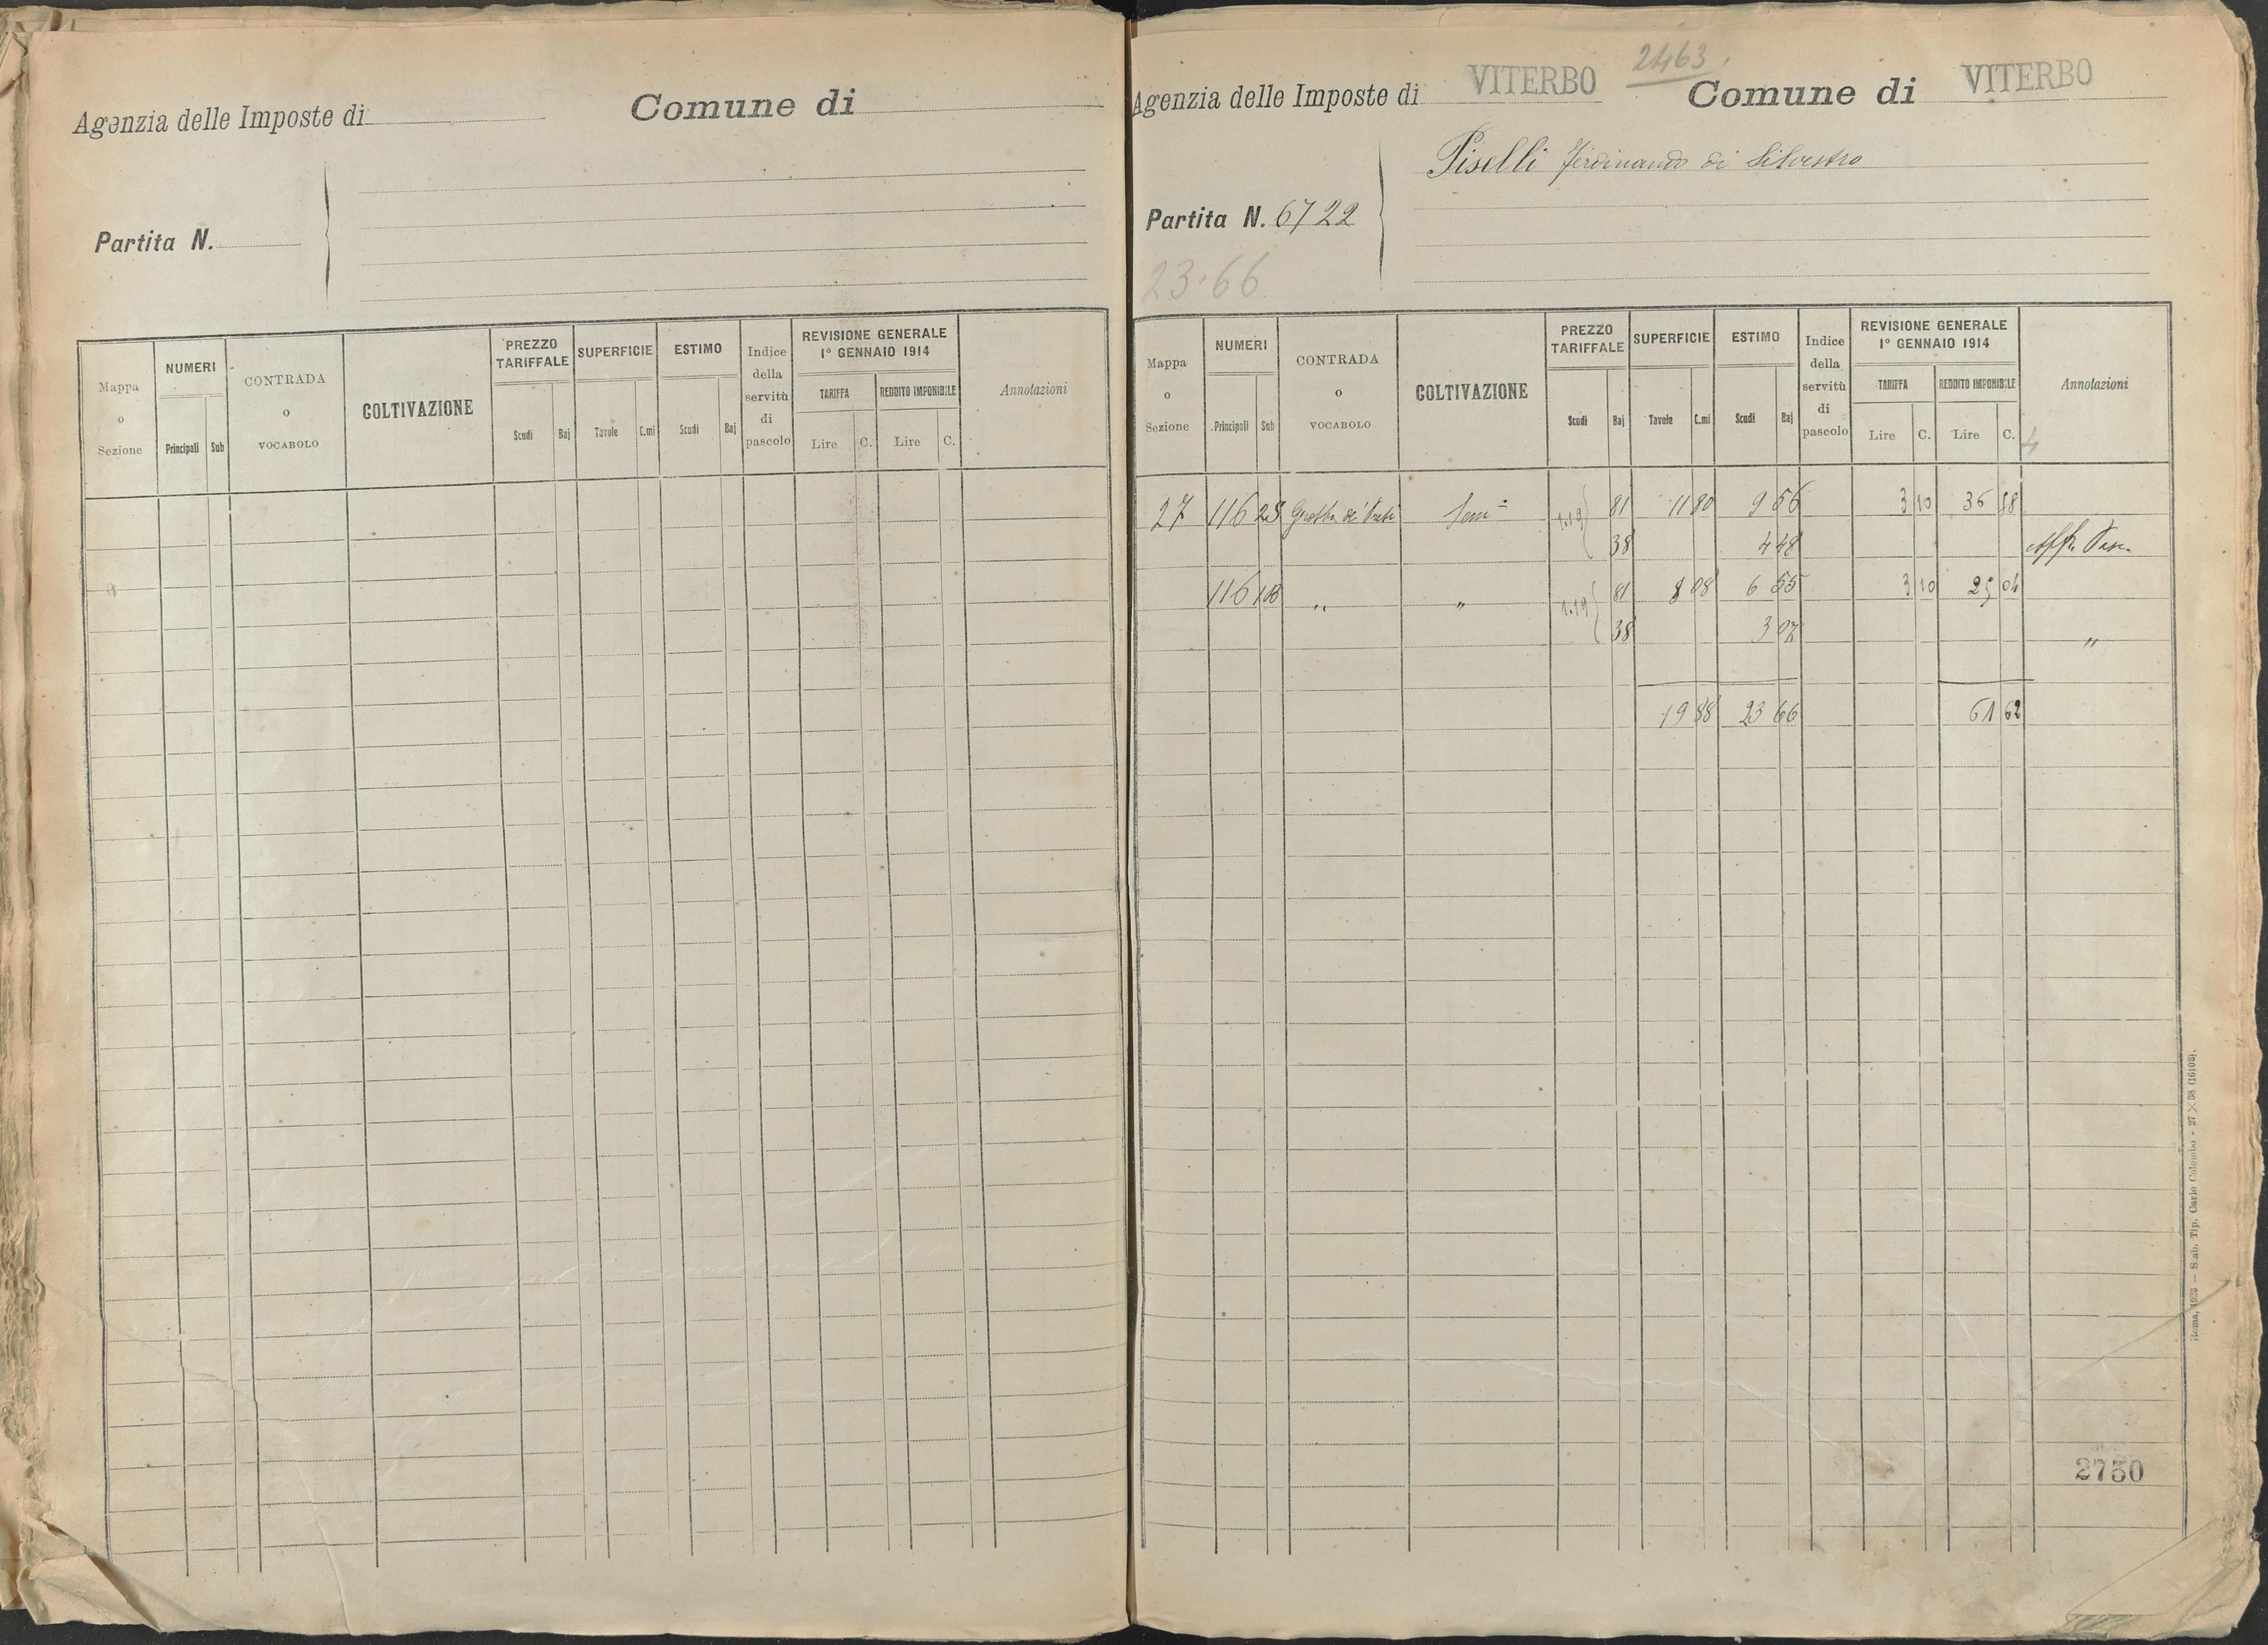 Agenzia delle Imposte di
Comune di
Partita N.
Mappa o Sezione
NUMERI
Principali Sub
CONTRADA o VOCABOLO
COLTIVAZIONE
PREZZO TARIFFALE
Scudi Baj
SUPERFICIE
Tavole C.mi
ESTIMO
Scudi Baj
Indice della servitù di pascolo
REVISIONE GENERALE
1° GENNAIO 1914
TARIFFA REDDITO IMPONIBILE
Lire C. Lire C.
Annotazioni
2463
Agenzia delle Imposte di VITERBO Comune di VITERBO
Piselli Ferdinando di Silvestro
Partita N. 6722
23.66
Mappa o Sezione
NUMERI
Principali Sub
CONTRADA o VOCABOLO
COLTIVAZIONE
PREZZO TARIFFALE
Scudi Baj
SUPERFICIE
Tavole C.mi
ESTIMO
Scudi Baj
Indice della servitù di pascolo
REVISIONE GENERALE
1° GENNAIO 1914
TARIFFA REDDITO IMPONIBILE
Lire C. Lire C.
Annotazioni
4
27 116 Sem 1.19 81 11 80 9 56 3 10 36 58
38 4 48
116 103 " " 1.19 81 8 08 6 55 3 10 25 04
38 3 07 "
19 88 23 66 61 62
2750
Roma, 1923 — Stab. Tip. Carlo Colombo - 27 × 38 (16103).